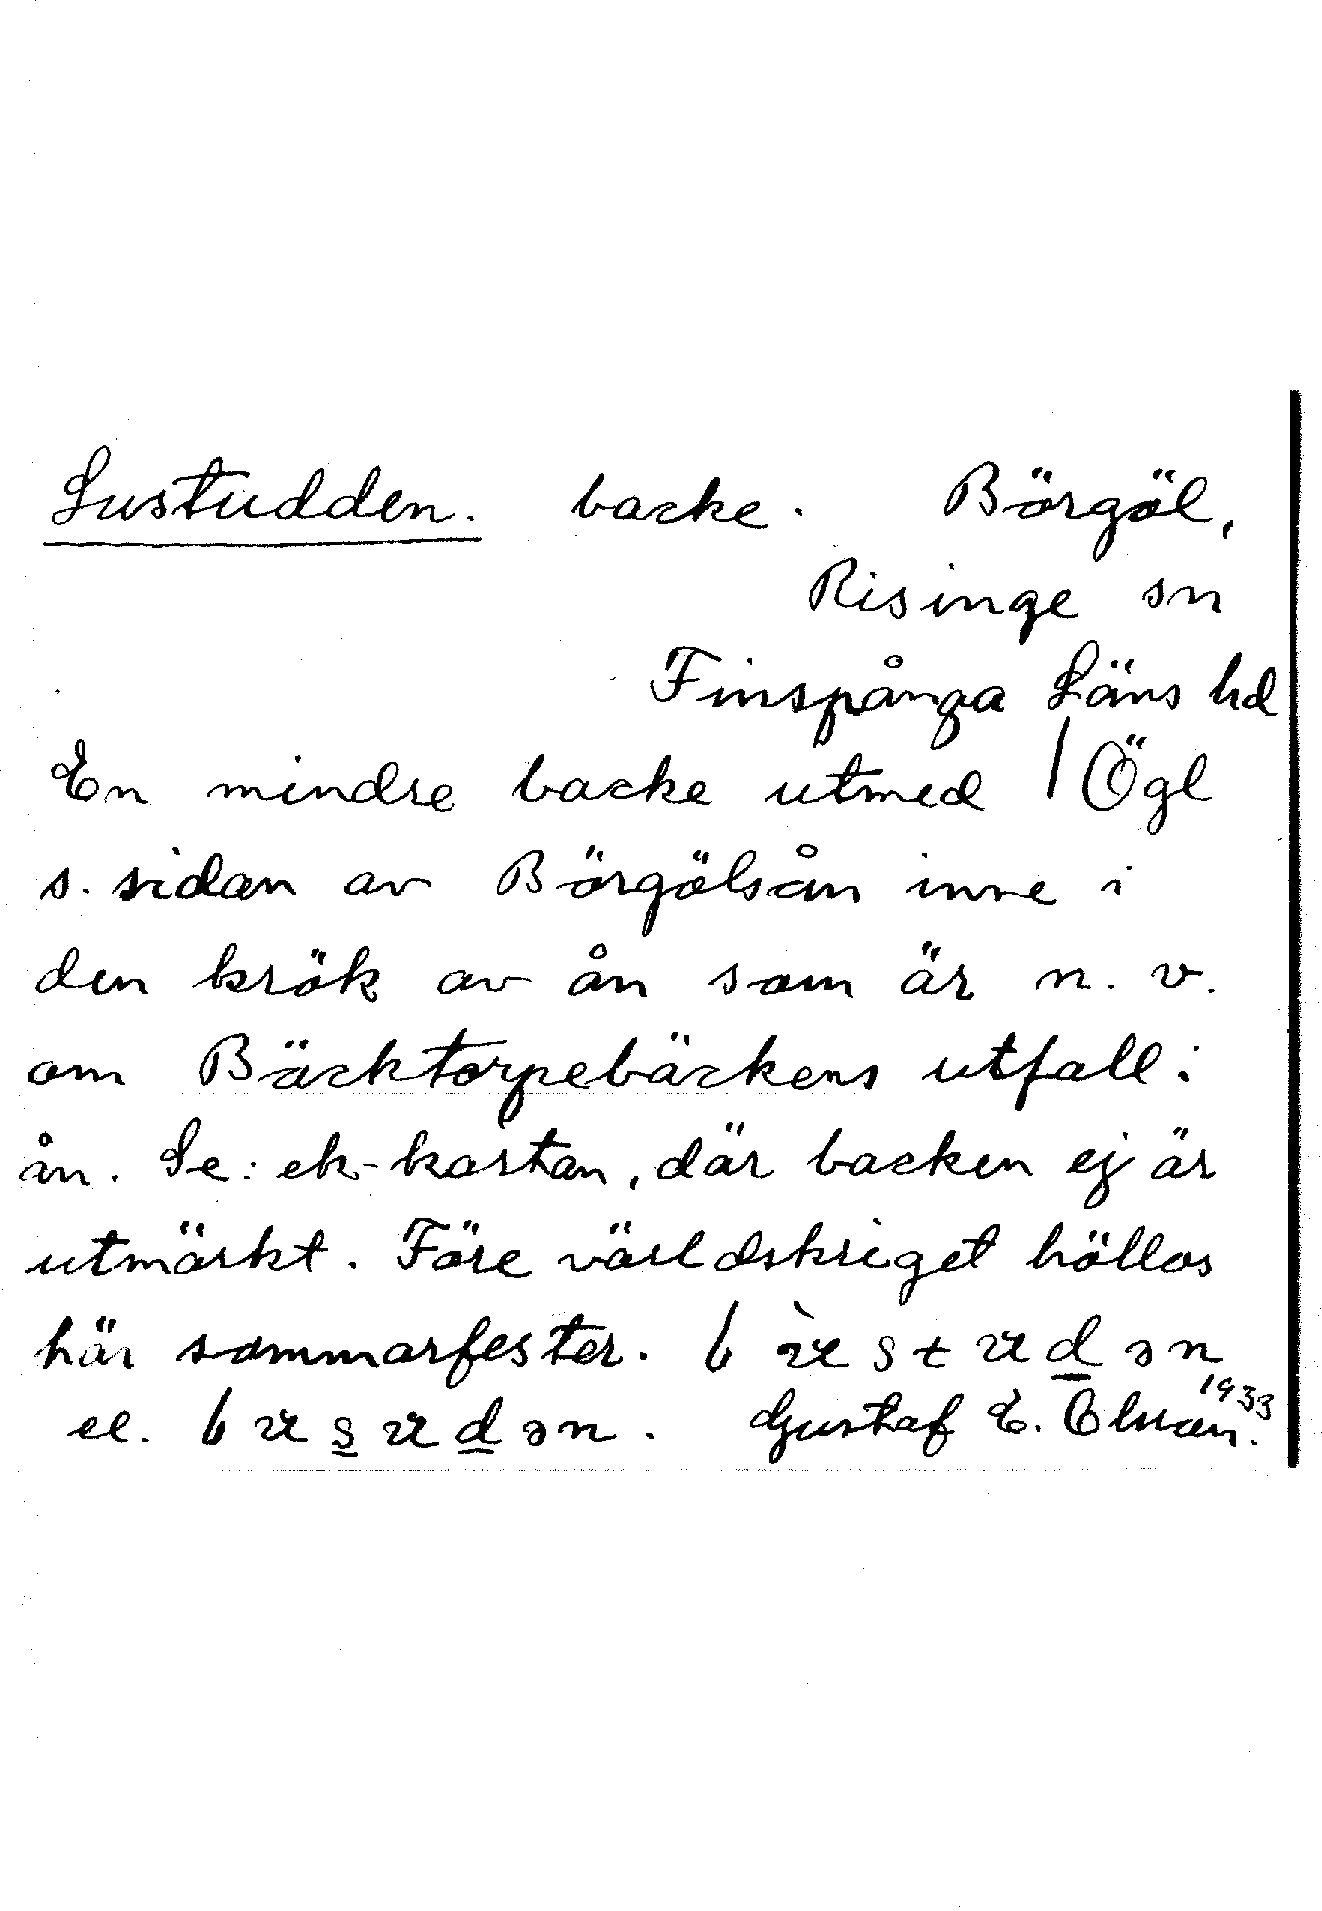 Lustudden. backe. Börgöl,
Risinge sn
Finspånga Läns hd
En mindre backe utmed / Ögl
s. sidan av Börgölsån inne i
den krök av ån som är n. v.
om Bäcktorpebäckens utfall i
ån. Se: ek-kartan, där backen ej är
utmärkt. Före världskriget höllos
här sommarfester.
el. Gustaf E. 1933